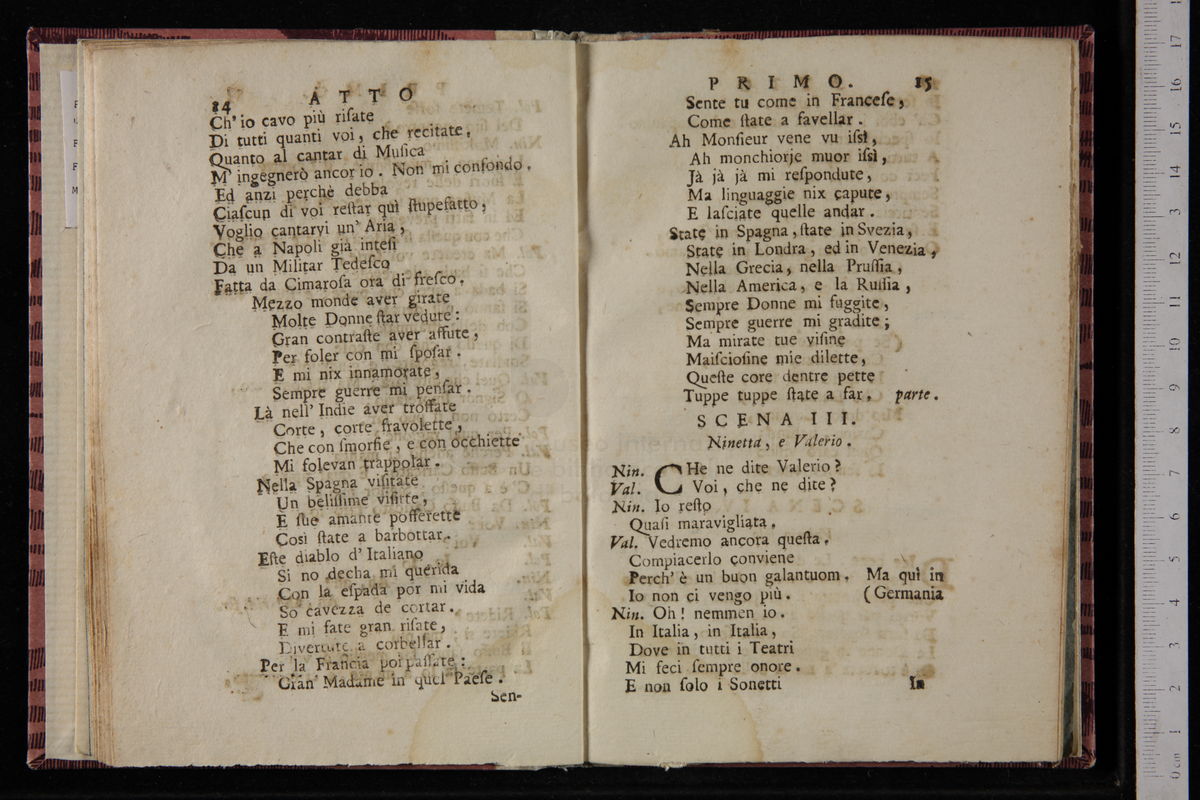 84 ATTO
Ch'io cavo più riſate
Di tutti quanti voi, che recitate,
Quanto al cantar di Muſica
M' ingegnerò ancor io. Non mi confondo.
Ed anzi perchè debba
Ciaſcun di voi reſtar quì ſtupefatto,
Voglio cantarvi un' Aria,
Che a Napoli già inteſi
Da un Militar Tedeſco
Fatta da Cimaroſa ora di freſco.
Mezzo monde aver girate
Molte Donne ſtar vedute:
Gran contraſte aver aſſute,
Per foler con mi ſpoſar.
E mi nix innamorate,
Sempre guerre mi penſar.
Là nell' Indie aver troffate
Corte, corte fravolette,
Che con ſmorfie, e con occhiette
Mi folevan trappolar.
Nella Spagna viſitate
Un beliſſime viſirte,
E ſue amante pofferette
Così ſtate a barbottar.
Eſte diablo d' Italiano
Si no decha mi querida
Con la eſpada por mi vida
So cavezza de cortar.
E mi fate gran riſate,
Diverture a corbellar.
Per la Francia poi paſſate:
Gran Madame in quel Paeſe.
Sen-
PRIMO. 15
Sente tu come in Franceſe,
Come ſtate a favellar.
Ah Monſieur vene vu iſsì,
Ah monchiorje muor iſsì,
Jà jà jà mi reſpondute,
Ma linguaggie nix capute,
E laſciate quelle andar.
State in Spagna, ſtate in Svezia,
State in Londra, ed in Venezia,
Nella Grecia, nella Pruſſia,
Nella America, e la Ruſſia,
Sempre Donne mi fuggite,
Sempre guerre mi gradite;
Ma mirate tue viſine
Maiſcioſine mie dilette,
Queſte core dentre pette
Tuppe tuppe ſtate a far. parte.
SCENA III.
Ninetta, e Valerio.
Nin. CHe ne dite Valerio?
Val. Voi, che ne dite?
Nin. Io reſto
Quaſi maravigliata.
Val. Vedremo ancora queſta.
Compiacerlo conviene
Perch' è un buon galantuom. Ma quì in
Io non ci vengo più. (Germania
Nin. Oh! nemmen io.
In Italia, in Italia,
Dove in tutti i Teatri
Mi feci ſempre onore.
E non ſolo i Sonetti
In